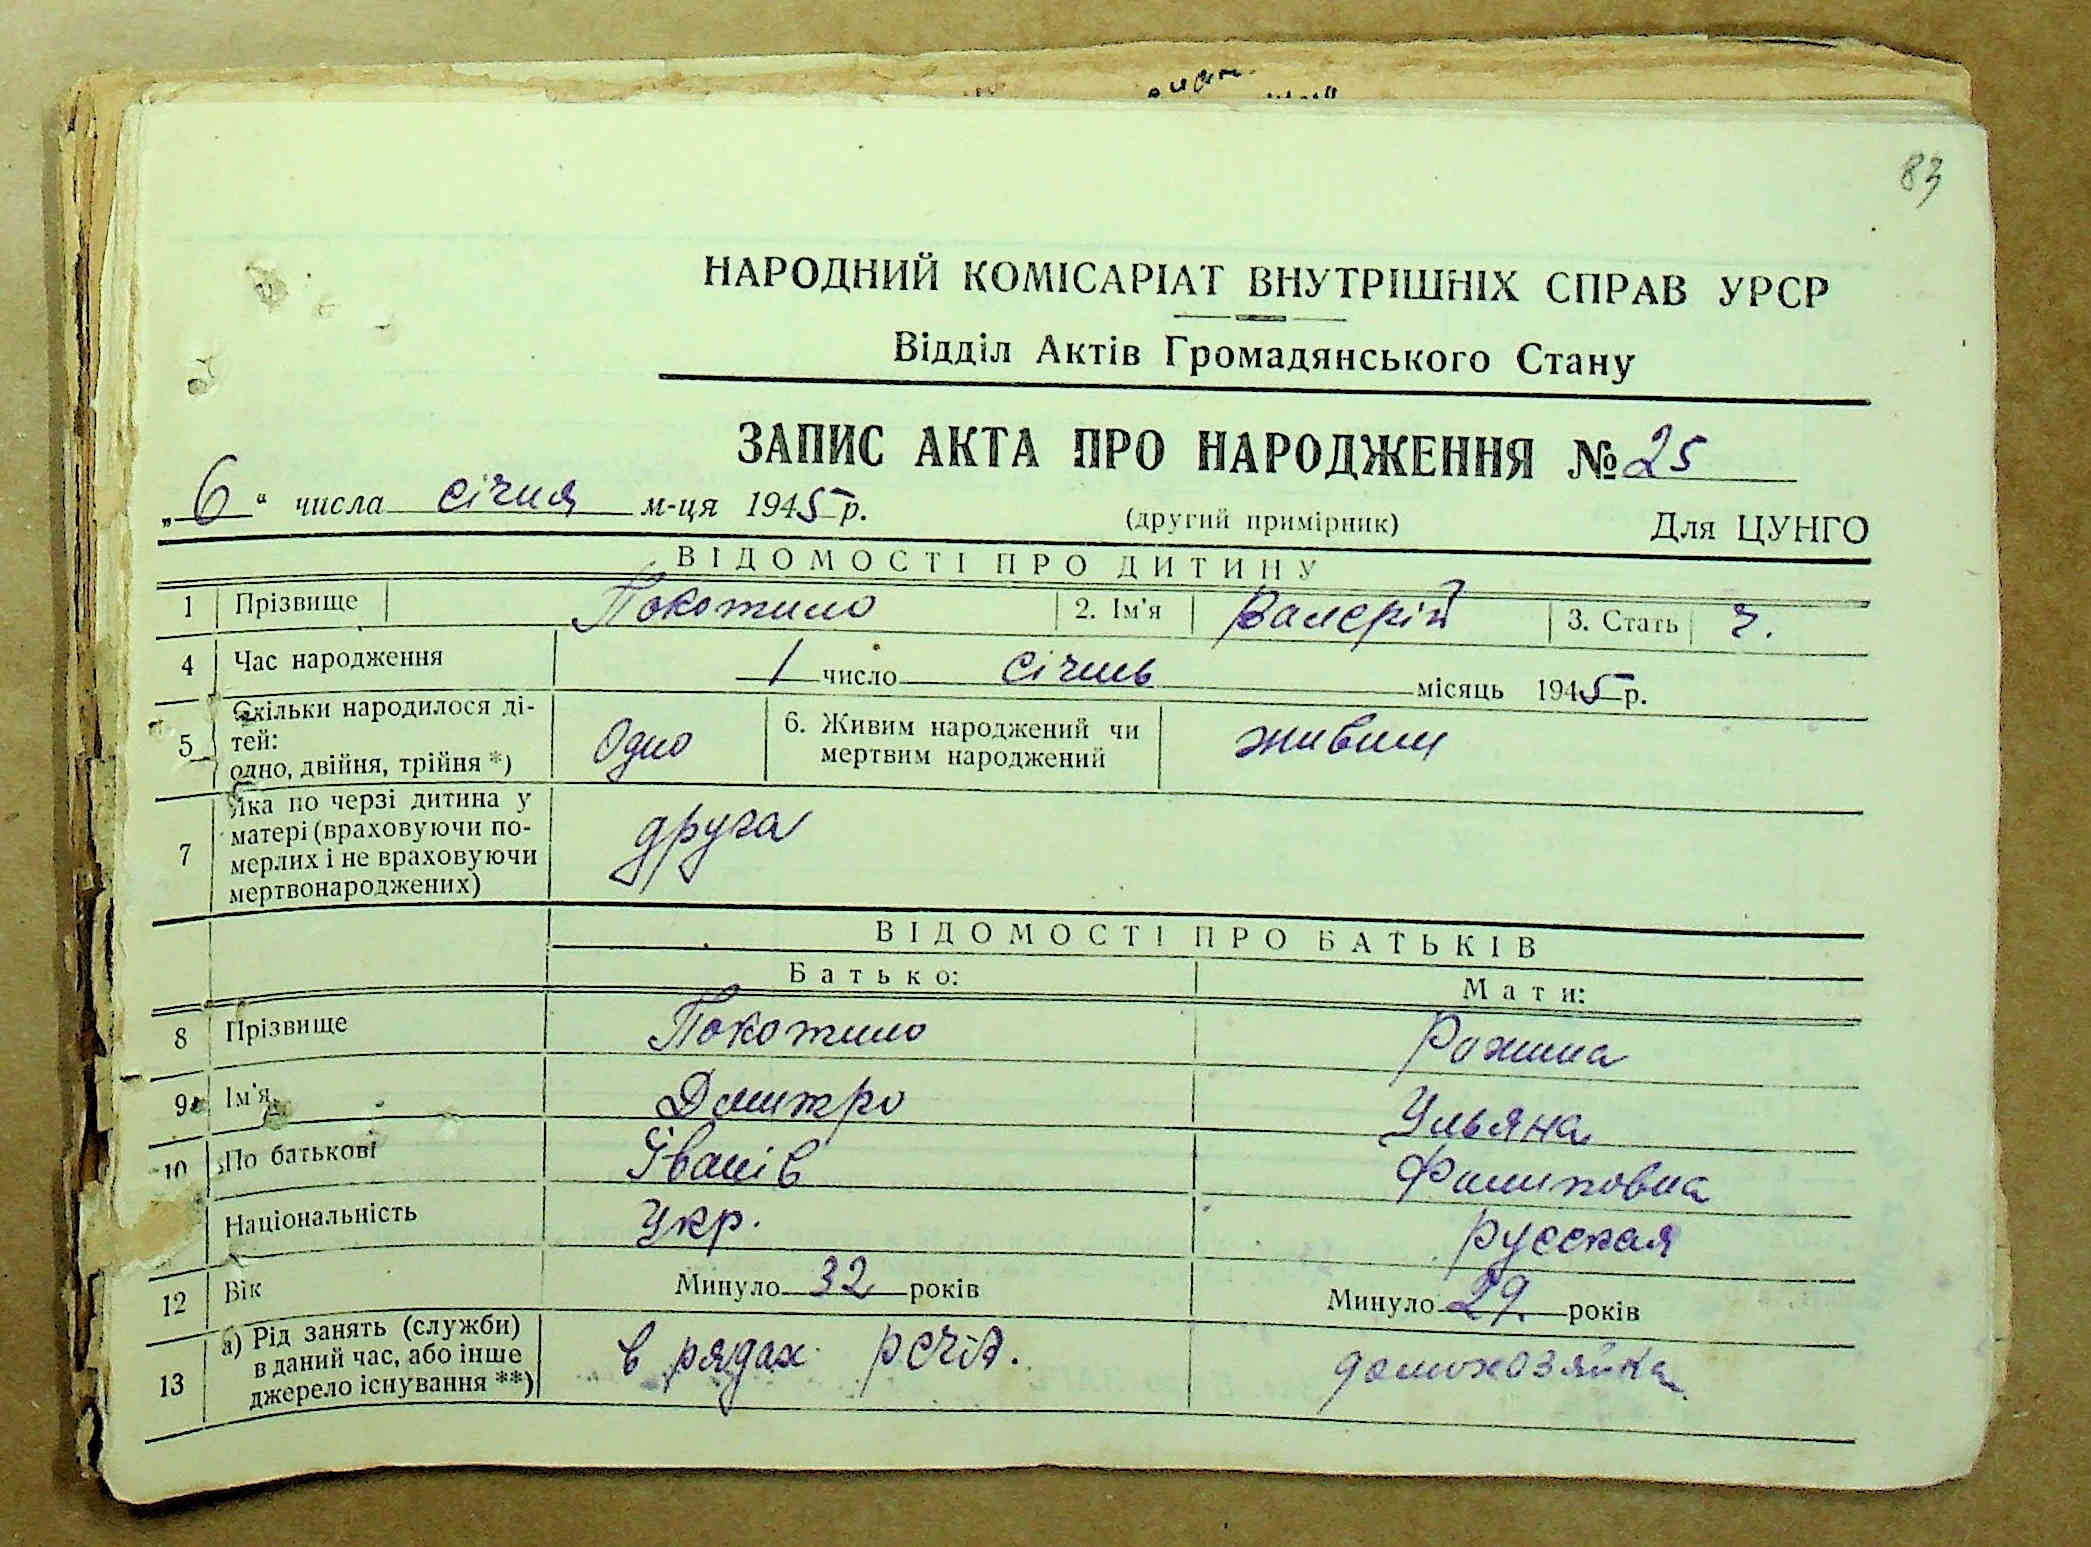 83
НАРОДНИЙ КОМІСАРІАТ ВНУТРІШНІХ СПРАВ УРСР
Відділ Актів Громадянського Стану
ЗАПИС АКТА ПРО НАРОДЖЕННЯ № 25
„6“ числа січня м-ця 1945 р. (другий примірник) Для ЦУНГО
ВІДОМОСТІ ПРО ДИТИНУ
1 Прізвище Покотило 2. Ім'я Валерій 3. Стать ч.
4 Час народження 1 число січень місяць 1945 р.
5 Скільки народилося ді-
тей:
одно, двійня, трійня *) Одно 6. Живим народжений чи
мертвим народжений живим
7 Яка по черзі дитина у
матері (враховуючи по-
мерлих і не враховуючи
мертвонароджених) друга
ВІДОМОСТІ ПРО БАТЬКІВ
Батько: Мати:
8 Прізвище Покотило
9 Ім'я Дмитро Ульяна
10 По батькові Іванів Филиповна
Національність Укр. русская
12 Вік Минуло 32 років Минуло 29 років
13 а) Рід занять (служби)
в даний час, або інше
джерело існування **) в рядах домохозяйка